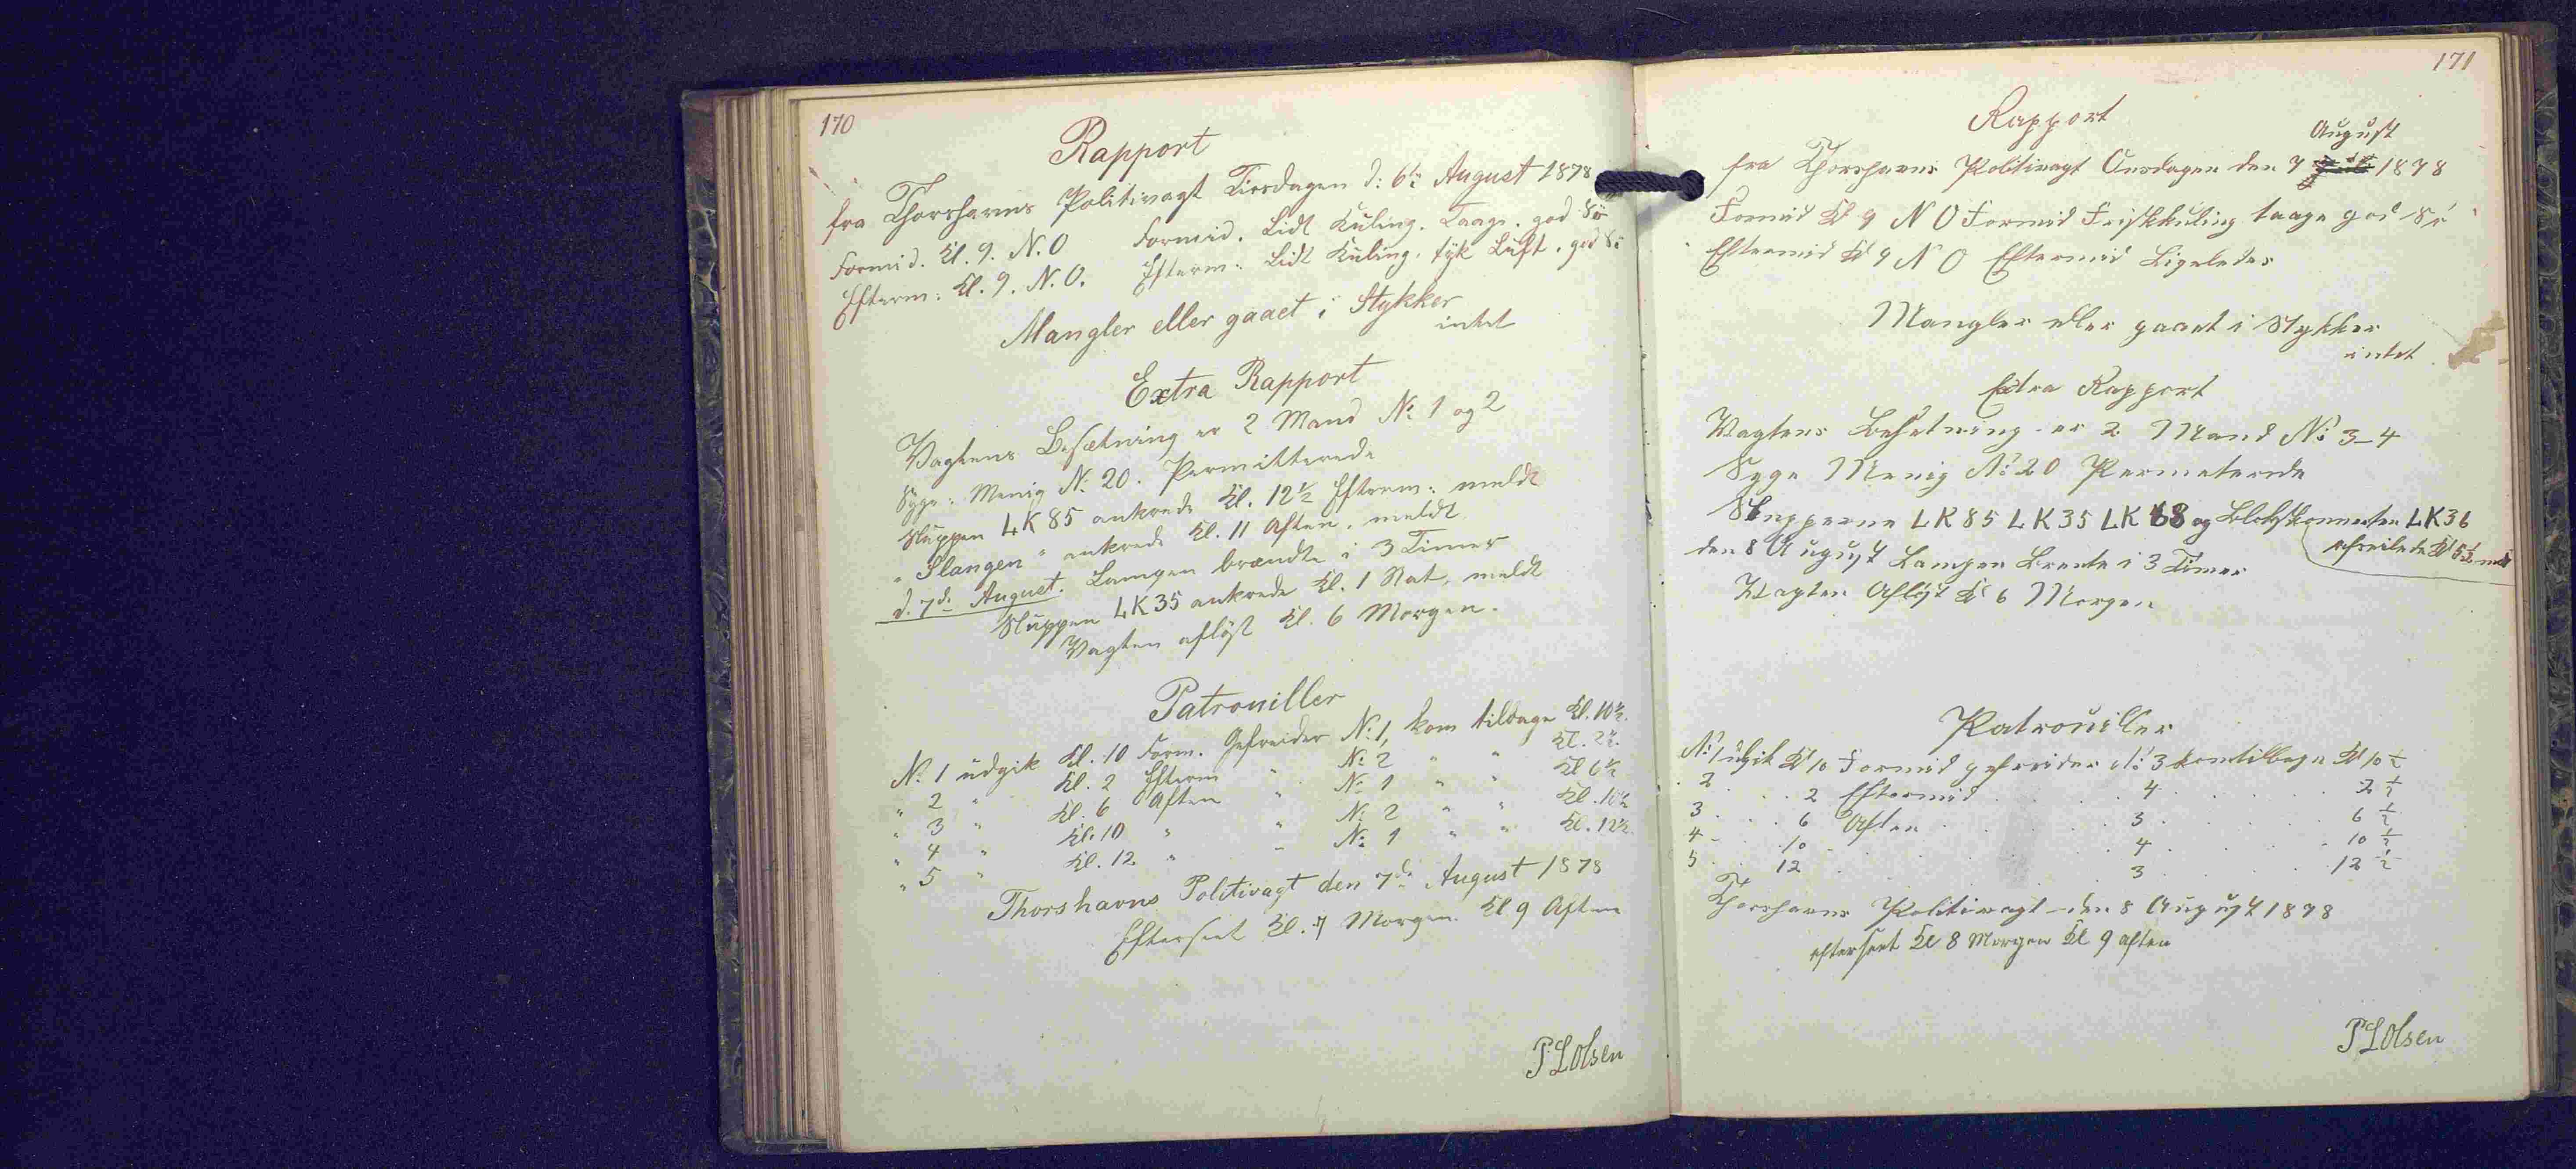 170
Rapport
fra Thorshavns Politivagt Tirsdagen d: 6te August 1878
Formid. Kl. 9. N.O Formid. Lidt Kuling. Taage. god Sö
Efterm: Kl. 9. N.O. Efterm: Lidt Kuling, tyk Luft. god Sö
Mangler eller gaaet i Stykker
intet
Extra Rapport
Vagtens Besætning er 2 Mand No 1 og 2
Syge: Menig No 20. Permitterede
Sluppen LK 85 ankrede Kl. 12½ Efterm: meldt
" Slangen " ankrede Kl. 11 Aften, meldt
d. 7de August. Lampen brændte i 3 Timer
Sluppen LK 35 ankrede Kl. 1 Nat, meldt
Vagten aflöst Kl. 6 Morgen.
Patrouiller
No 1 udgik Kl. 10 Form. Gefreider No 1, kom tilbage Kl. 10½.
" 2 " Kl. 2 Efterm " No 2 " " Kl. 2½.
" 3 " Kl. 6 Aften " No 1 " " Kl 6½
" 4 " Kl. 10 " " No 2 " " Kl. 10½
" 5 " Kl. 12 " " No 1 " " Kl. 12½
Thorshavns Politivagt den 7de August 1878
Efterseet Kl. 7 Morgen. Kl 9 Aften
P L Olsen
171
Rapport
August
fra Thorshavns Politivagt Onsdagen den 7 1878
Formid Kl 9 N O Formid Friskkuling taage god Sö
Eftermid Kl 9 N O Eftermid Ligeledes
Mangler eller gaaet i Stykker
intet
Extra Rapport
Vagtens Besetning er 2 Mand No 3-4
Syge Menig No 20 Permeterede
Slupperne LK 85 LK 35 LK 68 og LK 36
afseilede Kl 5½
den 8 August Lampen Brente i 3 Timer
Vagten Aflöst Kl 6 Morgen
Patrouiller
No 1 udgik Kl 10 Formid gefreider No 3 kom tilbage Kl 10 ½
2 . . . 2 Eftermid . . . 4 . . . 2 ½
3 . . . 6 Aften . . . 3 . . . 6 ½
4 - . . 10 . . . 4 . . . 10 ½
5 . . 12 . . . 3 . . . 12 ½
Thorshavns Politivagt den 8 August 1878
efterseet Kl 8 Morgen Kl 9 aften
P L Olsen